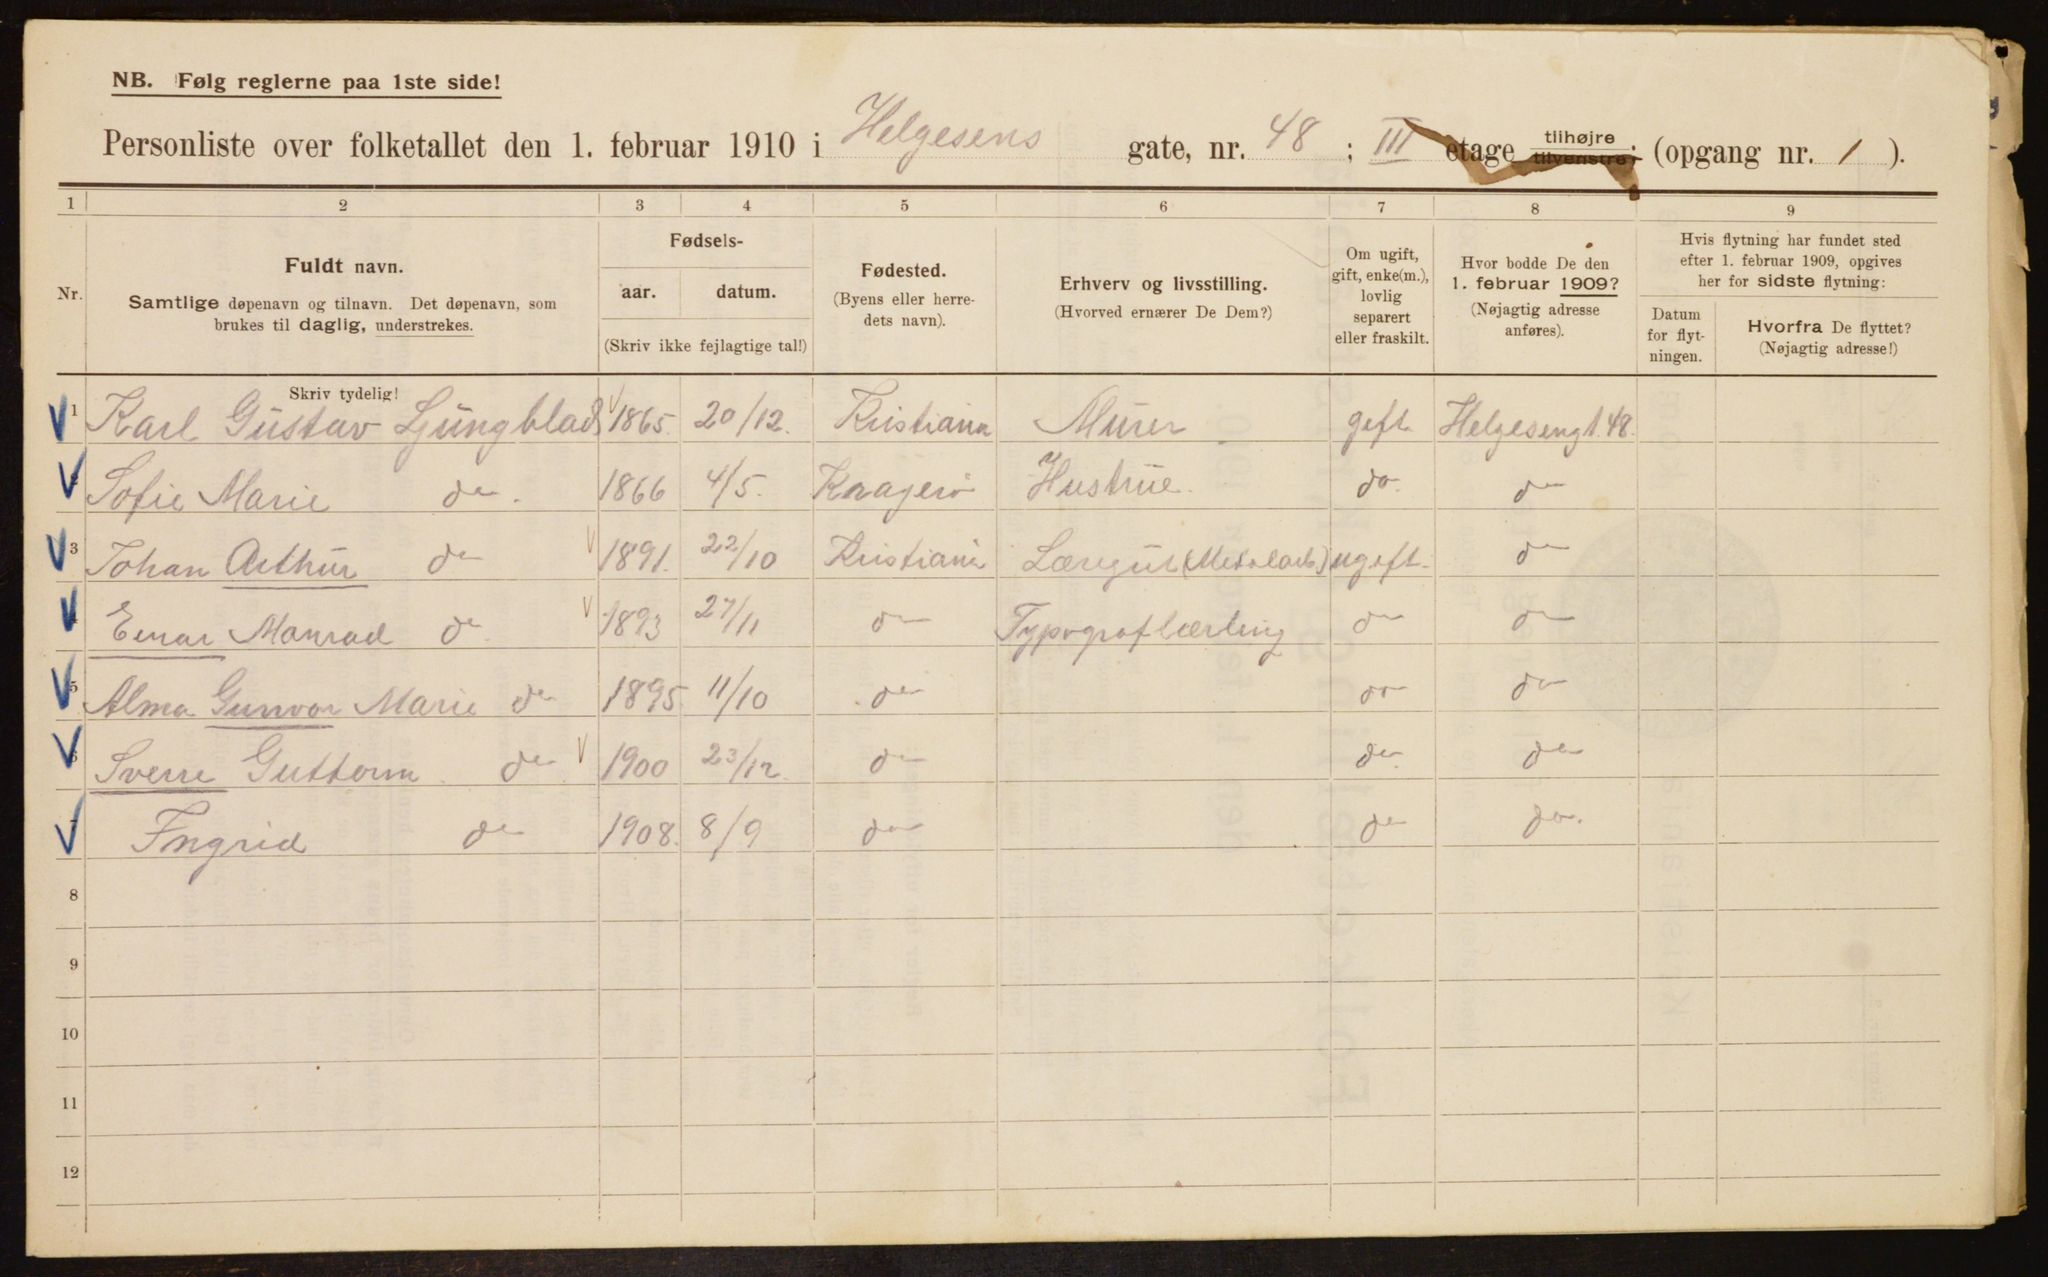 NB. Følg reglerne paa 1ste side!
Personliste over folketallet den 1. februar 1910 i Helgesens gate, nr. 48 ; III etage tilhøjre tilvenstre; (opgang nr. 1 ).
1 2 3 4 5 6 7 8 9
Nr.
Fuldt navn.
Samtlige døpenavn og tilnavn. Det døpenavn, som
brukes til daglig, understrekes.
Skriv tydelig!
Fødsels-
aar. datum.
(Skriv ikke fejlagtige tal!)
Fødested.
(Byens eller herre-
dets navn).
Erhverv og livsstilling.
(Hvorved ernærer De Dem?)
Om ugift,
gift, enke(m.),
lovlig
separert
eller fraskilt.
Hvor bodde De den
1. februar 1909?
(Nøjagtig adresse
anføres).
Hvis flytning har fundet sted
efter 1. februar 1909, opgives
her for sidste flytning:
Datum
for flyt-
ningen.
Hvorfra De flyttet?
(Nøjagtig adresse!)
1 Karl Gustav Ljungblad 1865. 20/12. Kristiania Murer gift Helgesengt. 48.
Sofie Marie do. 1866 4/5. Kragerø Hustrue. do. do
3 Johan Arthur do 1891. 22/10 Kristiania Læregut (Metalarb.) ugift. do
4 Einar Monrad do 1893 27/11 do Typograflærling do do
5 Alma Gunvor Marie do 1895 11/10 do do do
6 Sverre Guttorm do 1900 23/12. do do. do
7 Ingrid do 1908. 8/9 do do do.
8
9
10
11
12